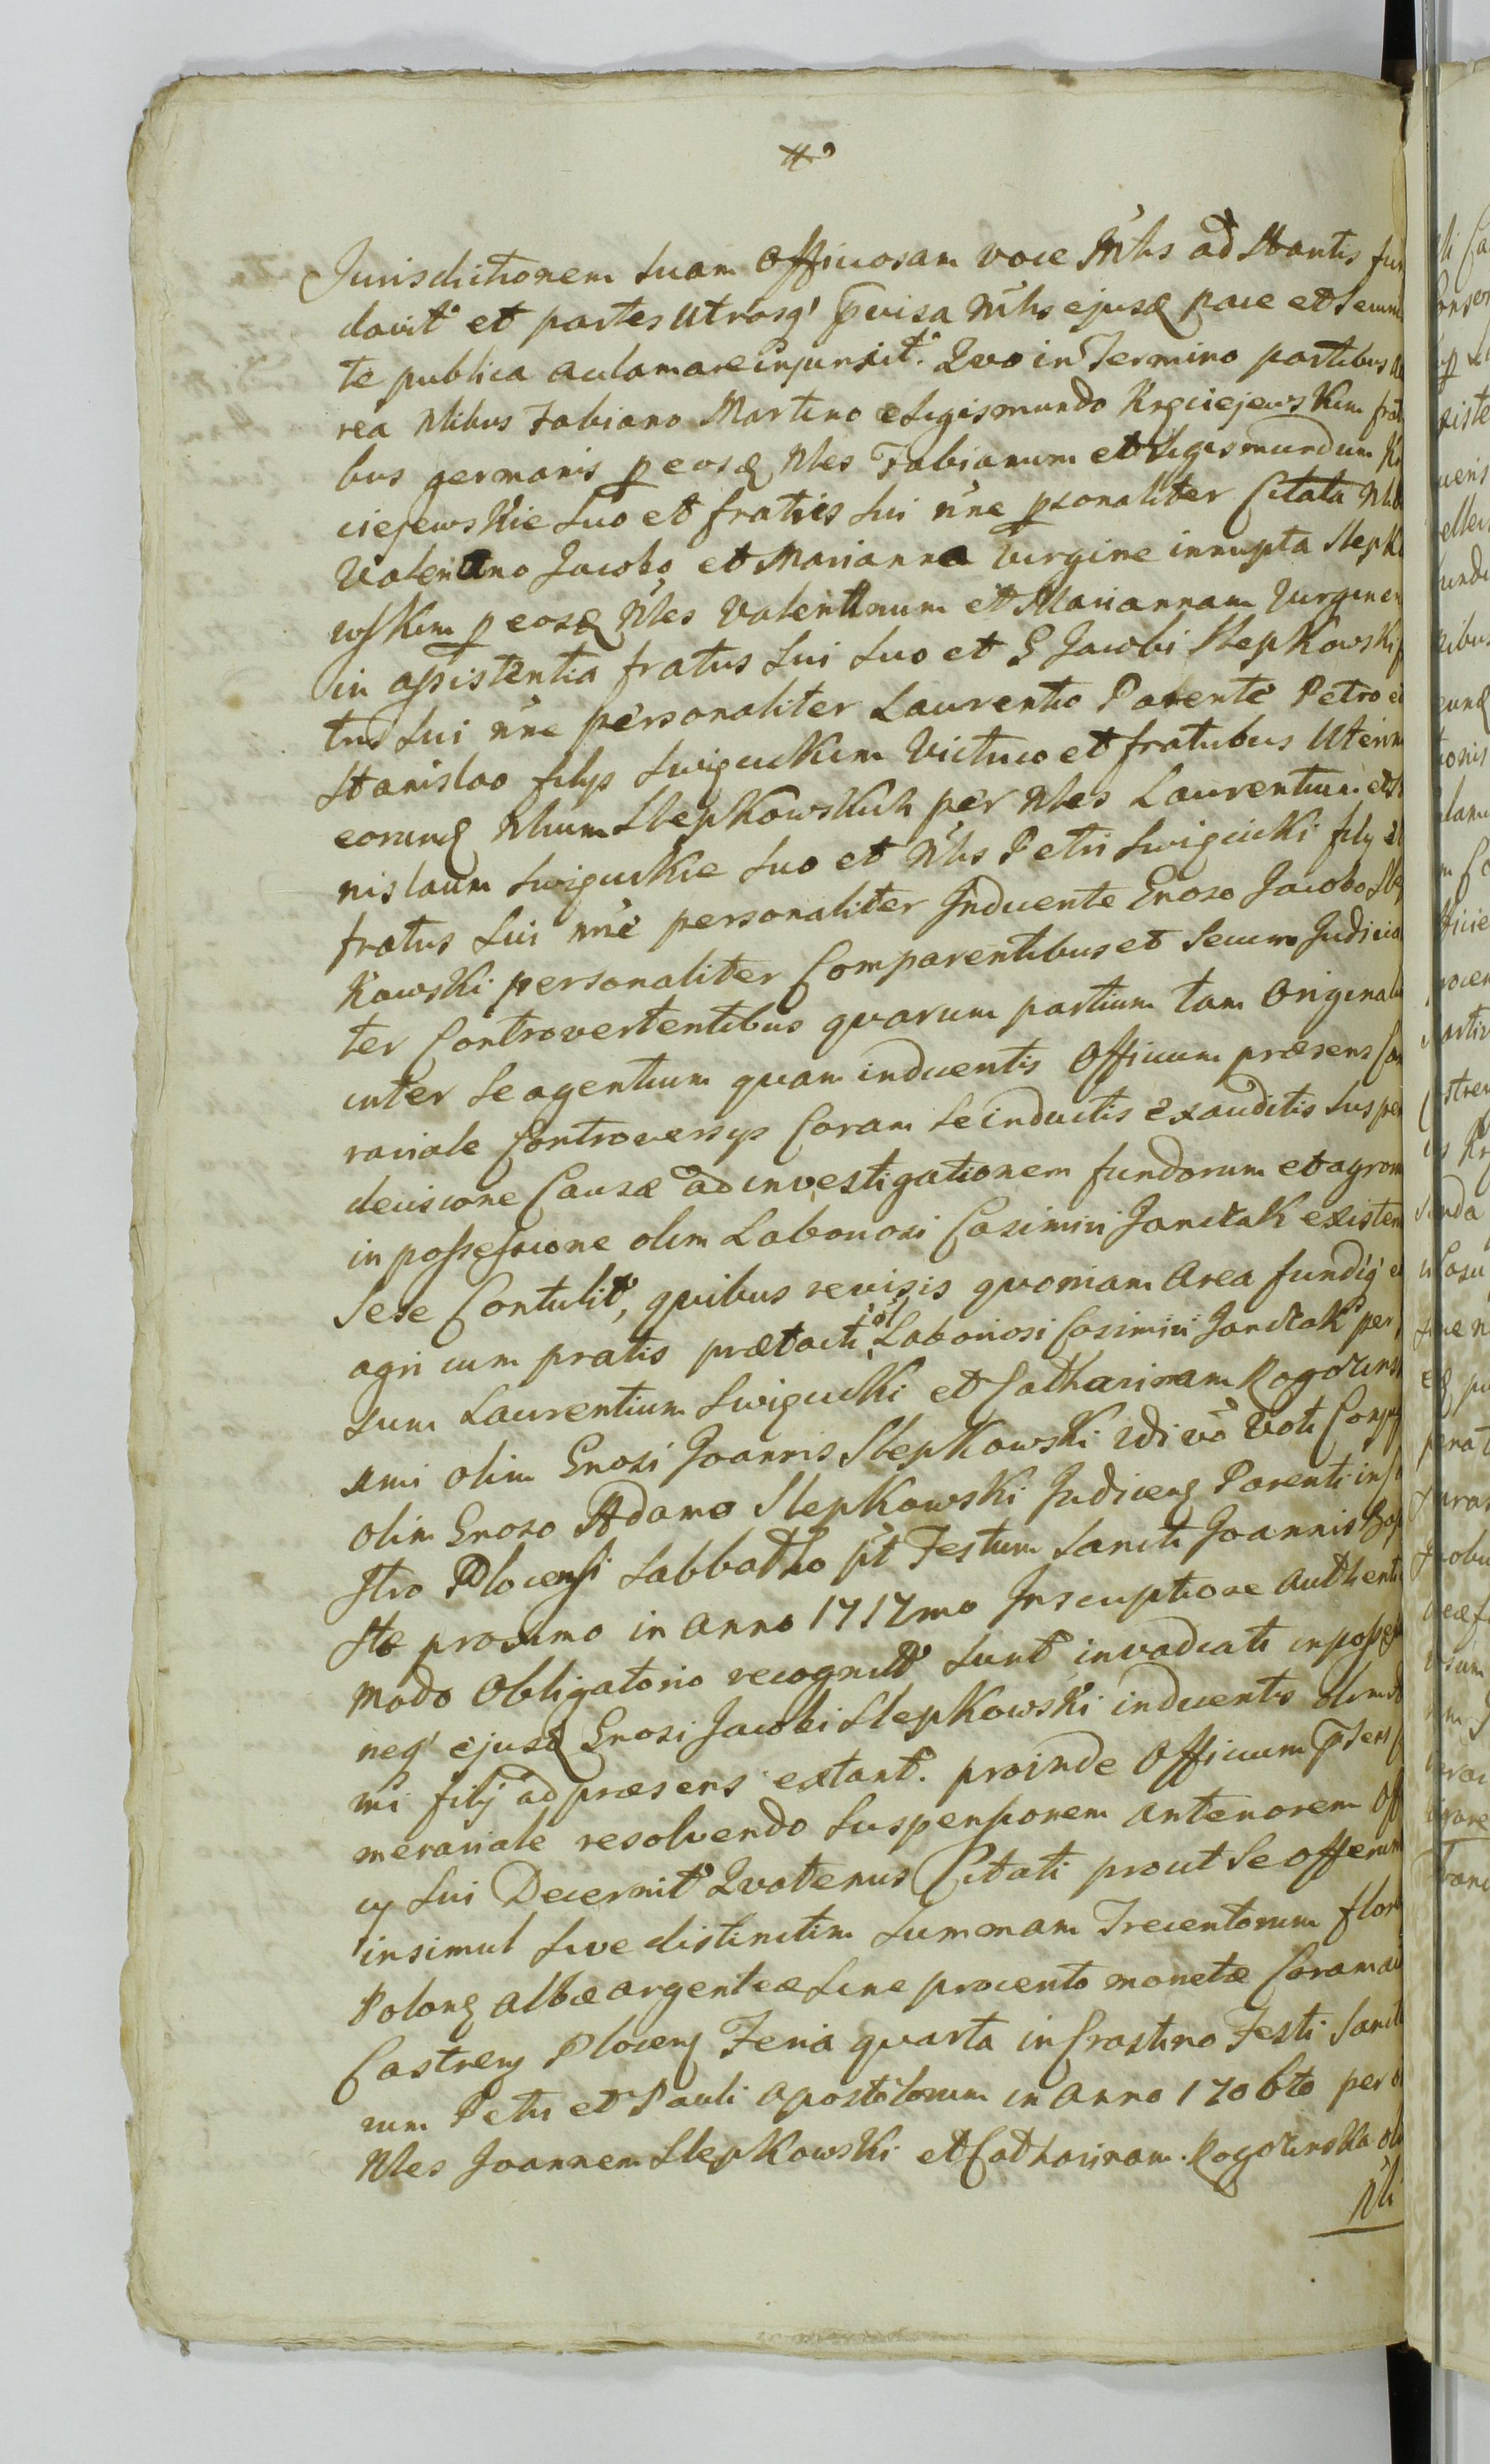 Jurisdictionem suam Officiosam voce Mtrls ad Stantis fun
davit et partes utrasq' pvisa Mtrls ejusd pace et Secum
te publica aclamare injunxit. Quo in Termino partibus
rea Nlibus Fabiano Martino e Sigismundo Kręciejewskim frat
bus germanis p eosd Nles Fabianum et Sigismundum Kr
ciejewskie Suo et fratris Sui nne psonaliter Citata Nlib
Valentino Jacobo et Marianna Virgine innupta Slepko
wskim p eosd Nles Valentinum et Mariannam Virginem
in assistentia fratris Sui Suo et G Jacobi Slepkowski f
tris Sui nne personaliter Laurentio Parente Petro et
Stanislao filijs Swięcickim Victrico et fratribus Uterin
eorund Nlium Slepkowskich per Nles Laurentium et S
nislaum Swięcickie Suo et Nlis Petri Swięcicki filij et
fratris Sui nne personaliter Inducente Gnoso Jacobo Slep
kowski personaliter Comparentibus et Secum Judicia
ter Controvertentibus quarum partium tam Originali
inter Se agentium quam inducentis Officium præsens Ca
rariale Controversijs Coram Se inductis exauditis Suspen
decisione Causæ ad investigationem fundorum et agrorum
in possessione olim Laboriosi Casimiri Janczak existen
Sese Contulit, quibus revisis quoniam Area fundiq' et
agri cum pratis prætacti ol Laboriosi Casimiri Janczak per
sum Laurentium Swięcicki et Catharinam Rogozins
imi olim Gnosi Joannis Slepkowski 2di vo Voti Conjug
olim Gnoso Adamo Slepkowski Judiceng Parenti in Ca
stro Plocensi Sabbatho pt Festum Sancti Joannis Bap
stæ proximo in anno 1717mo Inscriptione Authenti
modo Obligatorio recognit Sunt invadiati in posses
neq' ejusd Gnosi Jacobi Slepkowski inducentis olim A
mi filij ad præsens extant. proinde Officium psens C
merariale resolvendo Suspensionem anteriorem Off
ij Sui Decernit Quatenus Citati prout Se offerunt
insimul Sive distinctim Summam Trecentorum flor
Polong albæ argenteæ Sine procento monetæ Coram a
Castreng Ploceng Feria quarta in Crastino Festi Sancto
rum Petri et Pauli Apostolorum in Anno 1706to per o
Nles Joannem Slepkowski et Catharinam Rogozinska oli
Nli